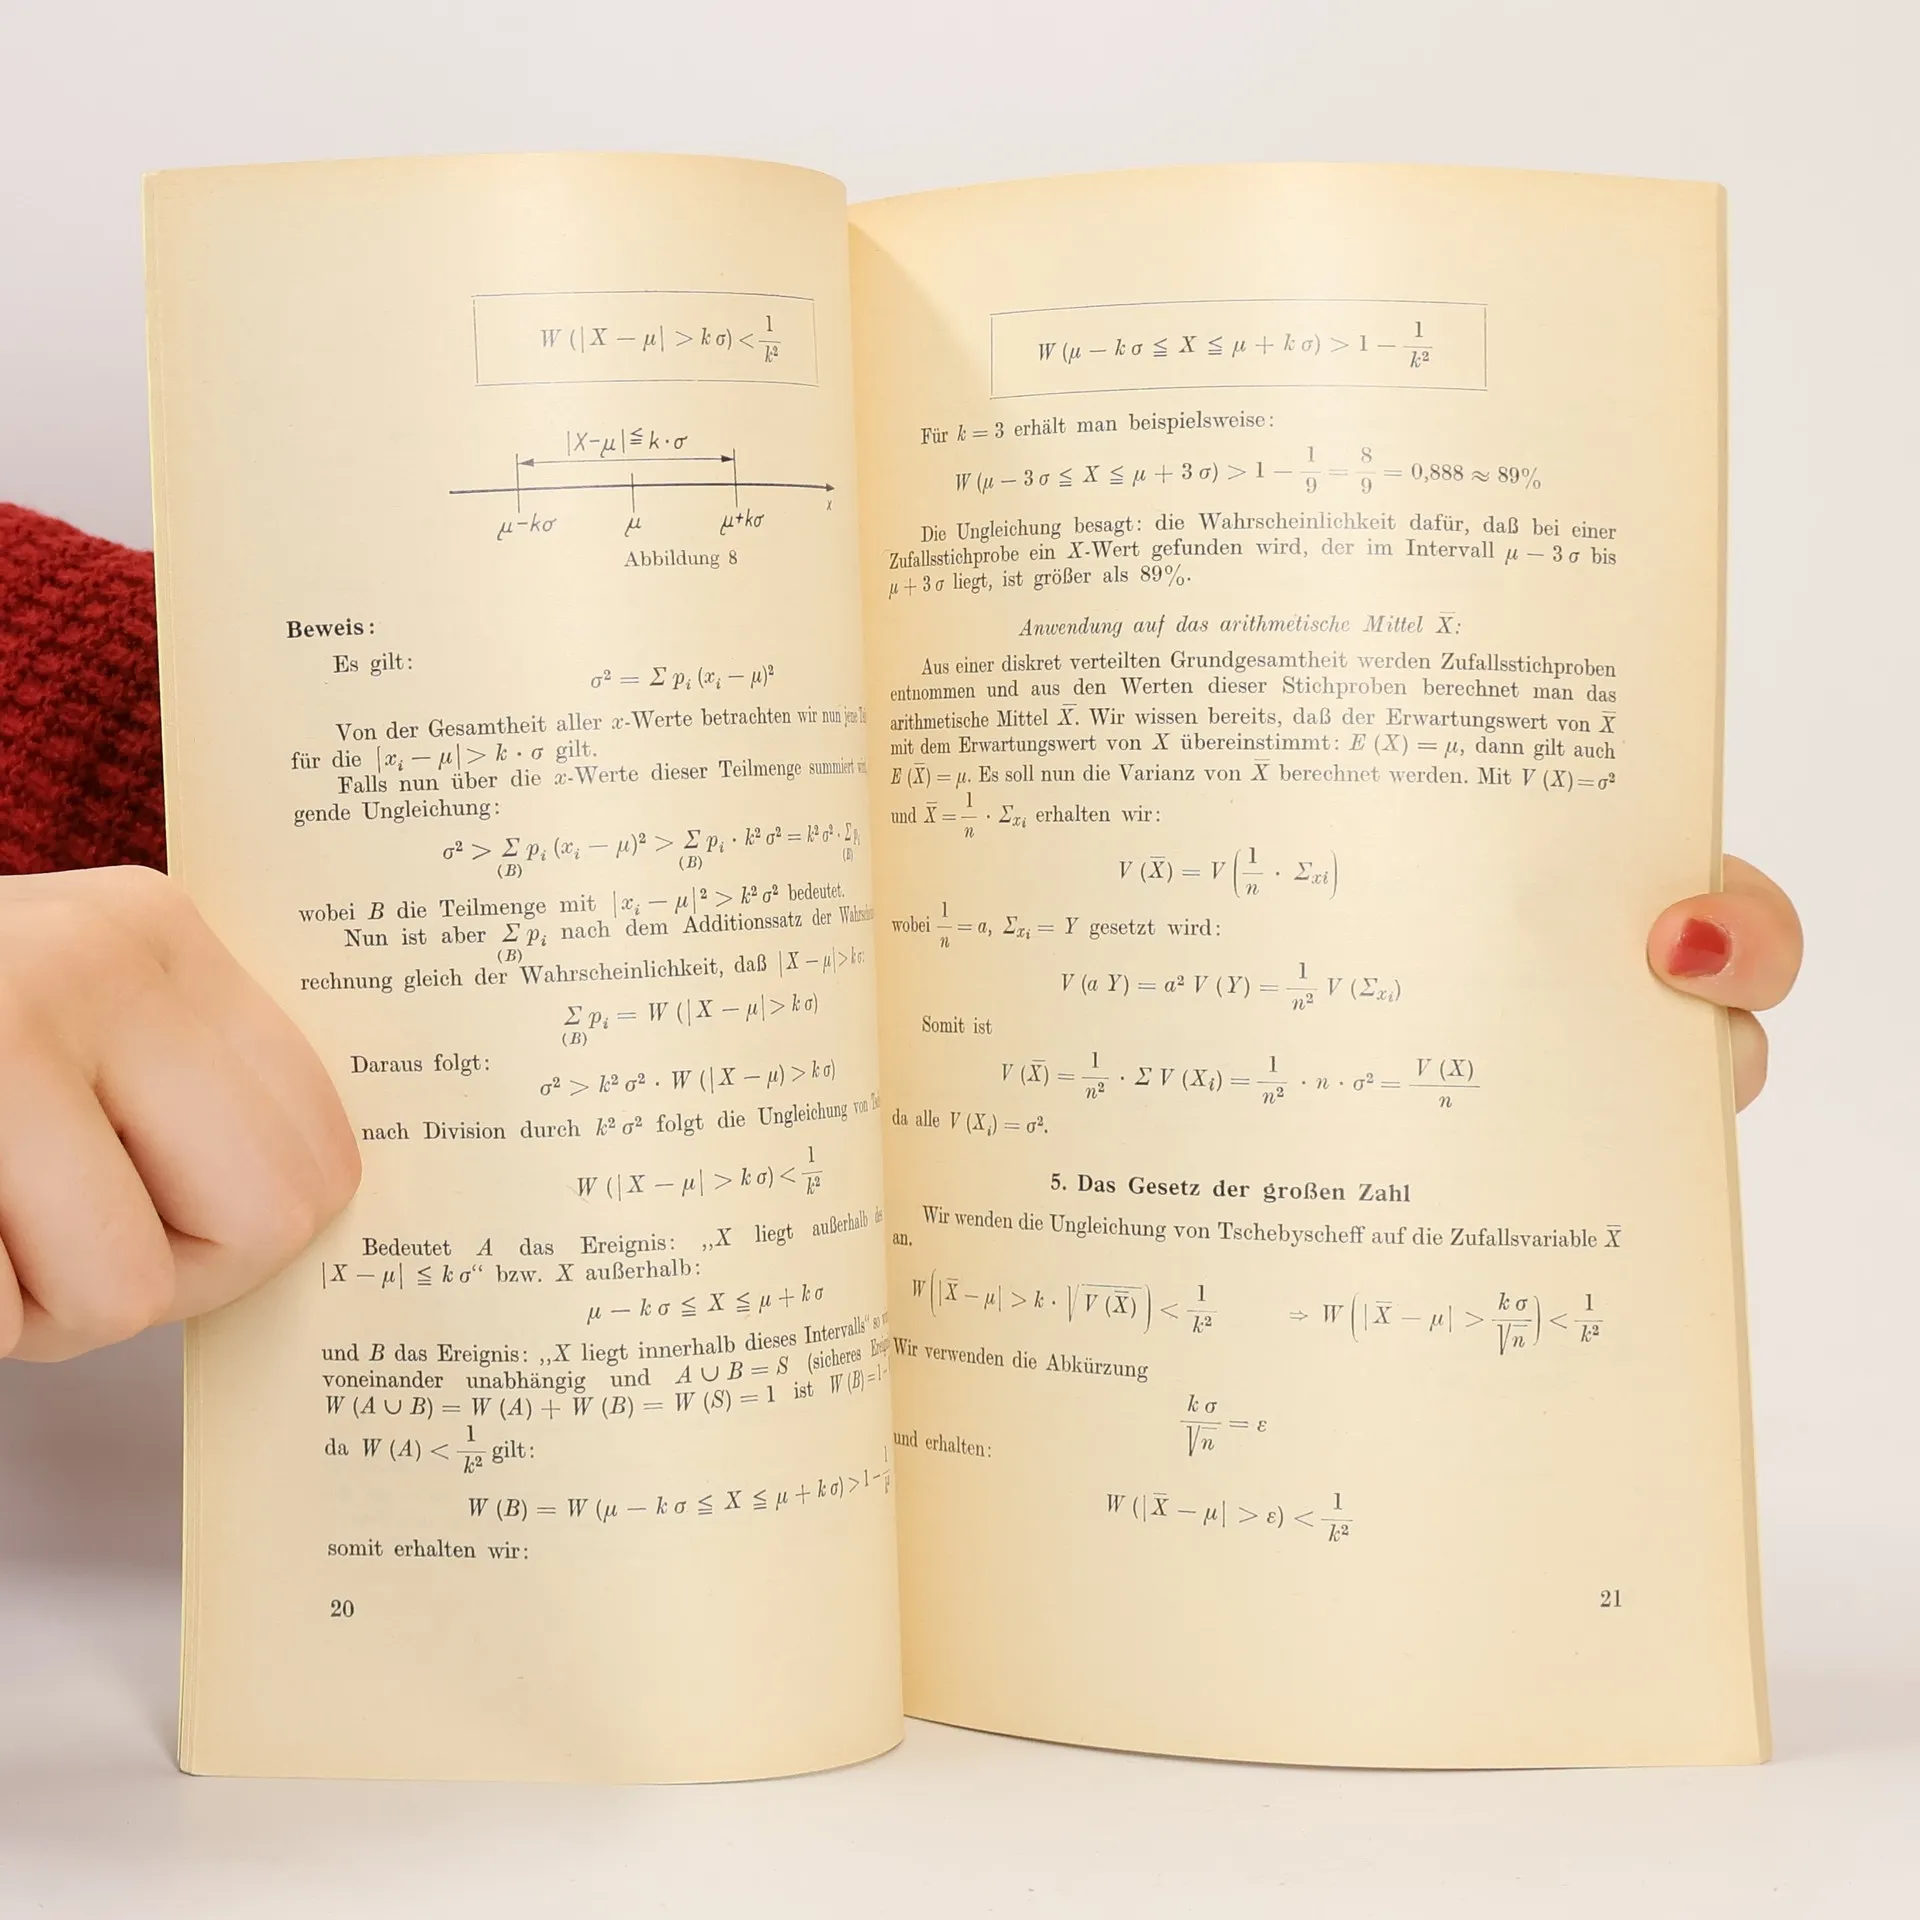 W (| X — μ| > k σ) < 1/k²
|X-μ| ≦ k·σ
μ-kσ μ μ+kσ x
Abbildung 8
Beweis:
Es gilt:
σ² = Σ pᵢ (xᵢ — μ)²
Von der Gesamtheit aller x-Werte betrachten wir nun jene
für die |xᵢ — μ| > k · σ gilt.
Falls nun über die x-Werte dieser Teilmenge summiert
gende Ungleichung:
σ² > Σ pᵢ (xᵢ — μ)² > Σ pᵢ · k² σ² = k² σ² · Σ pᵢ
(B) (B) (B)
wobei B die Teilmenge mit |xᵢ — μ|² > k² σ² bedeutet.
Nun ist aber Σ pᵢ nach dem Additionssatz der
(B)
rechnung gleich der Wahrscheinlichkeit, daß | X — μ| > kσ:
Σ pᵢ = W (| X — μ| > k σ)
(B)
Daraus folgt:
σ² > k² σ² · W (| X — μ) > k σ)
nach Division durch k² σ² folgt die Ungleichung von
W (| X — μ| > k σ) < 1/k²
Bedeutet A das Ereignis: „X liegt außerhalb
|X — μ| ≦ k σ“ bzw. X außerhalb:
μ — k σ ≦ X ≦ μ + k σ
und B das Ereignis: „X liegt innerhalb dieses Intervalls“ so
voneinander unabhängig und A ∪ B = S (sicheres
W (A ∪ B) = W (A) + W (B) = W (S) = 1 ist W (B) = 1 —
da W (A) < 1/k² gilt:
W (B) = W (μ — k σ ≦ X ≦ μ + k σ) > 1 — 1/k²
somit erhalten wir:
20
W (μ — k σ ≦ X ≦ μ + k σ) > 1 — 1/k²
Für k = 3 erhält man beispielsweise:
W (μ — 3 σ ≦ X ≦ μ + 3 σ) > 1 — 1/9 = 8/9 = 0,888 ≈ 89%
Die Ungleichung besagt: die Wahrscheinlichkeit dafür, daß bei einer
Zufallsstichprobe ein X-Wert gefunden wird, der im Intervall μ — 3 σ bis
μ + 3 σ liegt, ist größer als 89%.
Anwendung auf das arithmetische Mittel X̅:
Aus einer diskret verteilten Grundgesamtheit werden Zufallsstichproben
entnommen und aus den Werten dieser Stichproben berechnet man das
arithmetische Mittel X̅. Wir wissen bereits, daß der Erwartungswert von X̅
mit dem Erwartungswert von X übereinstimmt: E (X) = μ, dann gilt auch
E (X̅) = μ. Es soll nun die Varianz von X̅ berechnet werden. Mit V (X) = σ²
und X̅ = 1/n · Σxᵢ erhalten wir:
V (X̅) = V (1/n · Σxi)
wobei 1/n = a, Σxᵢ = Y gesetzt wird:
V (a Y) = a² V (Y) = 1/n² V (Σxᵢ)
Somit ist
V (X̅) = 1/n² · Σ V (Xᵢ) = 1/n² · n · σ² = V (X)/n
da alle V (Xᵢ) = σ².
5. Das Gesetz der großen Zahl
Wir wenden die Ungleichung von Tschebyscheff auf die Zufallsvariable X̅
an.
W (|X̅ — μ| > k · √V (X̅)) < 1/k² ⇒ W (| X̅ — μ| > k σ/√n) < 1/k²
Wir verwenden die Abkürzung
k σ/√n = ε
und erhalten:
W (| X̅ — μ| > ε) < 1/k²
21